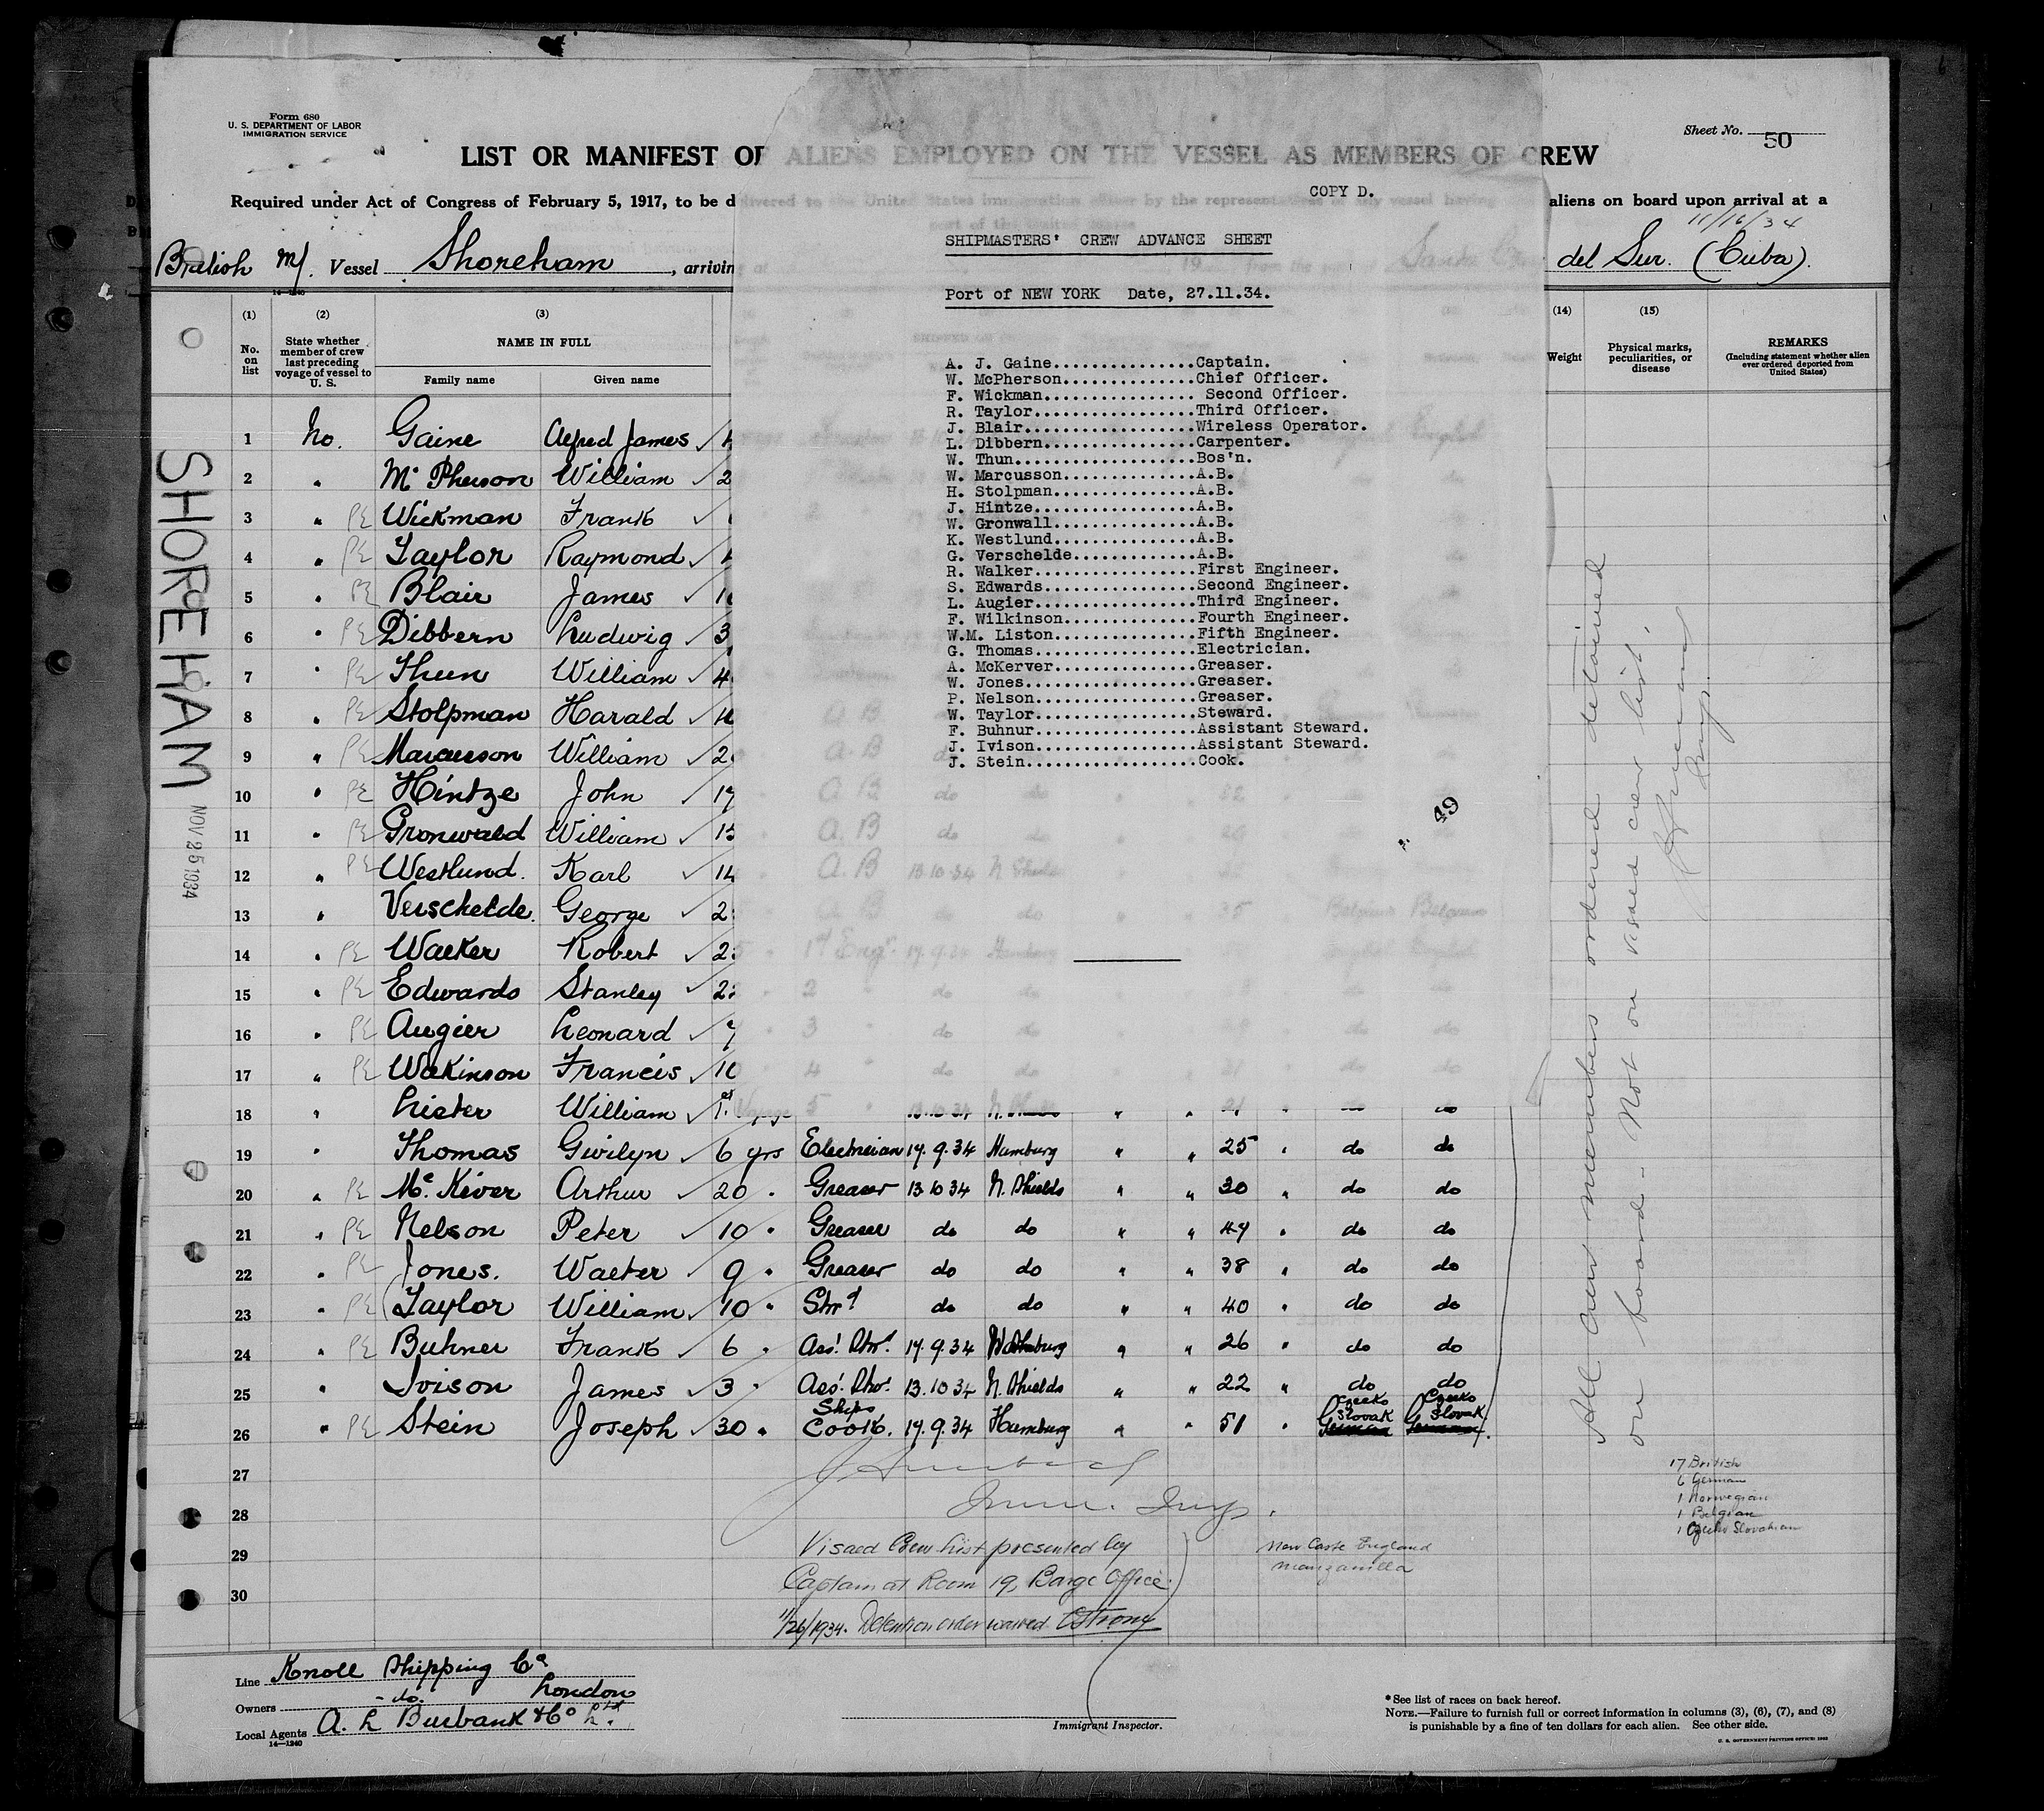 Form 680
U. S. DEPARTMENT OF LABOR
IMMIGRATION SERVICE
Sheet No. 50
LIST OR MANIFEST OF ALIENS EMPLOYED ON THE VESSEL AS MEMBERS OF CREW
COPY D.
Required under Act of Congress of February 5, 1917, to be delivered to the United States immigration officer by the representative of any vessel having aliens on board upon arrival at a
port of the United States
11/16/34
British M/. Vessel Shoreham, arriving at 19 from the port of Santa Cruz del Sur. (Cuba).
14—1240
SHIPMASTERS' CREW ADVANCE SHEET
Port of NEW YORK Date, 27.11.34.
A. J. Gaine...............Captain.
W. McPherson..............Chief Officer.
F. Wickman................ Second Officer.
R. Taylor.................Third Officer.
J. Blair..................Wireless Operator.
L. Dibbern................Carpenter.
W. Thun...................Bos'n.
W. Marcusson..............A.B.
H. Stolpman...............A.B.
J. Hintze.................A.B.
W. Gronwall...............A.B.
K. Westlund...............A.B.
G. Verschelde.............A.B.
R. Walker.................First Engineer.
S. Edwards................Second Engineer.
L. Augier.................Third Engineer.
F. Wilkinson..............Fourth Engineer.
W.M. Liston...............Fifth Engineer.
G. Thomas.................Electrician.
A. McKerver...............Greaser.
W. Jones..................Greaser.
P. Nelson.................Greaser.
W. Taylor.................Steward.
F. Buhnur.................Assistant Steward.
J. Ivison.................Assistant Steward.
J. Stein..................Cook.
49
(1) (2) (3) (14) (15)
No. on list
State whether member of crew last preceding voyage of vessel to U. S.
NAME IN FULL
Family name Given name
Weight
Physical marks, peculiarities, or disease
REMARKS
(Including statement whether alien ever ordered deported from United States)
SHOREHAM
NOV 25 1934
1 No. Gaine Alfred James
2 " McPherson William 2
3 " PE Wickman Frank
4 " PE Taylor Raymond
5 " PE Blair James
6 " PE Dibbern Ludwig 3
7 " PE Thun William 4
8 " PE Stolpman Harald A.B
9 " PE Marcusson William 2 A.B
10 " PE Hintze John 17 A.B do
11 " PE Gronwald William 15 A.B do
12 " PE Westlund. Karl 14 A.B 13 10 34 N Shields
13 " Verschelde. George 2 A B do do 35 Belgium Belgium
14 " PE Walker Robert 25 1st Engr 17.9.34 Hamburg
15 " PE Edwards Stanley 2 2 do do
16 " PE Augier Leonard 7 3 do do
17 " PE Wilkinson Francis 10 4 do do
18 " Lister William 1st Voyage 5 " 13.10.34 N. Shields " " 21 " do do
19 " Thomas Gwilyn 6 yrs Electrician 17.9.34 Hamburg " " 25 " do do
20 " PE Mc Kiver Arthur 20 " Greaser 13 10 34 N. Shields " " 30 " do do
21 " PE Nelson Peter 10 " Greaser do do " " 47 " do do
22 " PE Jones. Walter 9 " Greaser do do " " 38 " do do
23 " PE Taylor William 10 " Strd do do " " 40 " do do
24 " PE Buhner Frank 6 " Ass. Strd. 17.9.34 Hamburg " " 26 " do do
25 " Ivison James 3 " Ass. Strd. 13.10 34 N. Shields " " 22 " do do
26 " PE Stein Joseph 30 " Ships Cook. 17.9.34 Hamburg " " 51 " Czecko Slovak German Czecko Slovak German
27
28 Imm. Insp.
29
30
Visaed Crew List presented by
Captain at Room 19, Barge Office.
11/26/1934. Detention order waived. CStrong
New Castle England
Manzanilla
All crew members ordered detained
on board - Not on visaed crew list.
Insp.
17 British
6 German
1 Norwegian
1 Belgian
1 Czecko Slovakian
Line Knoll Shipping Co
Owners - do. London
Local Agents A. L Burbank & Co Ltd.
14—1240
Immigrant Inspector.
* See list of races on back hereof.
NOTE.—Failure to furnish full or correct information in columns (3), (6), (7), and (8)
is punishable by a fine of ten dollars for each alien. See other side.
U. S. GOVERNMENT PRINTING OFFICE: 1932